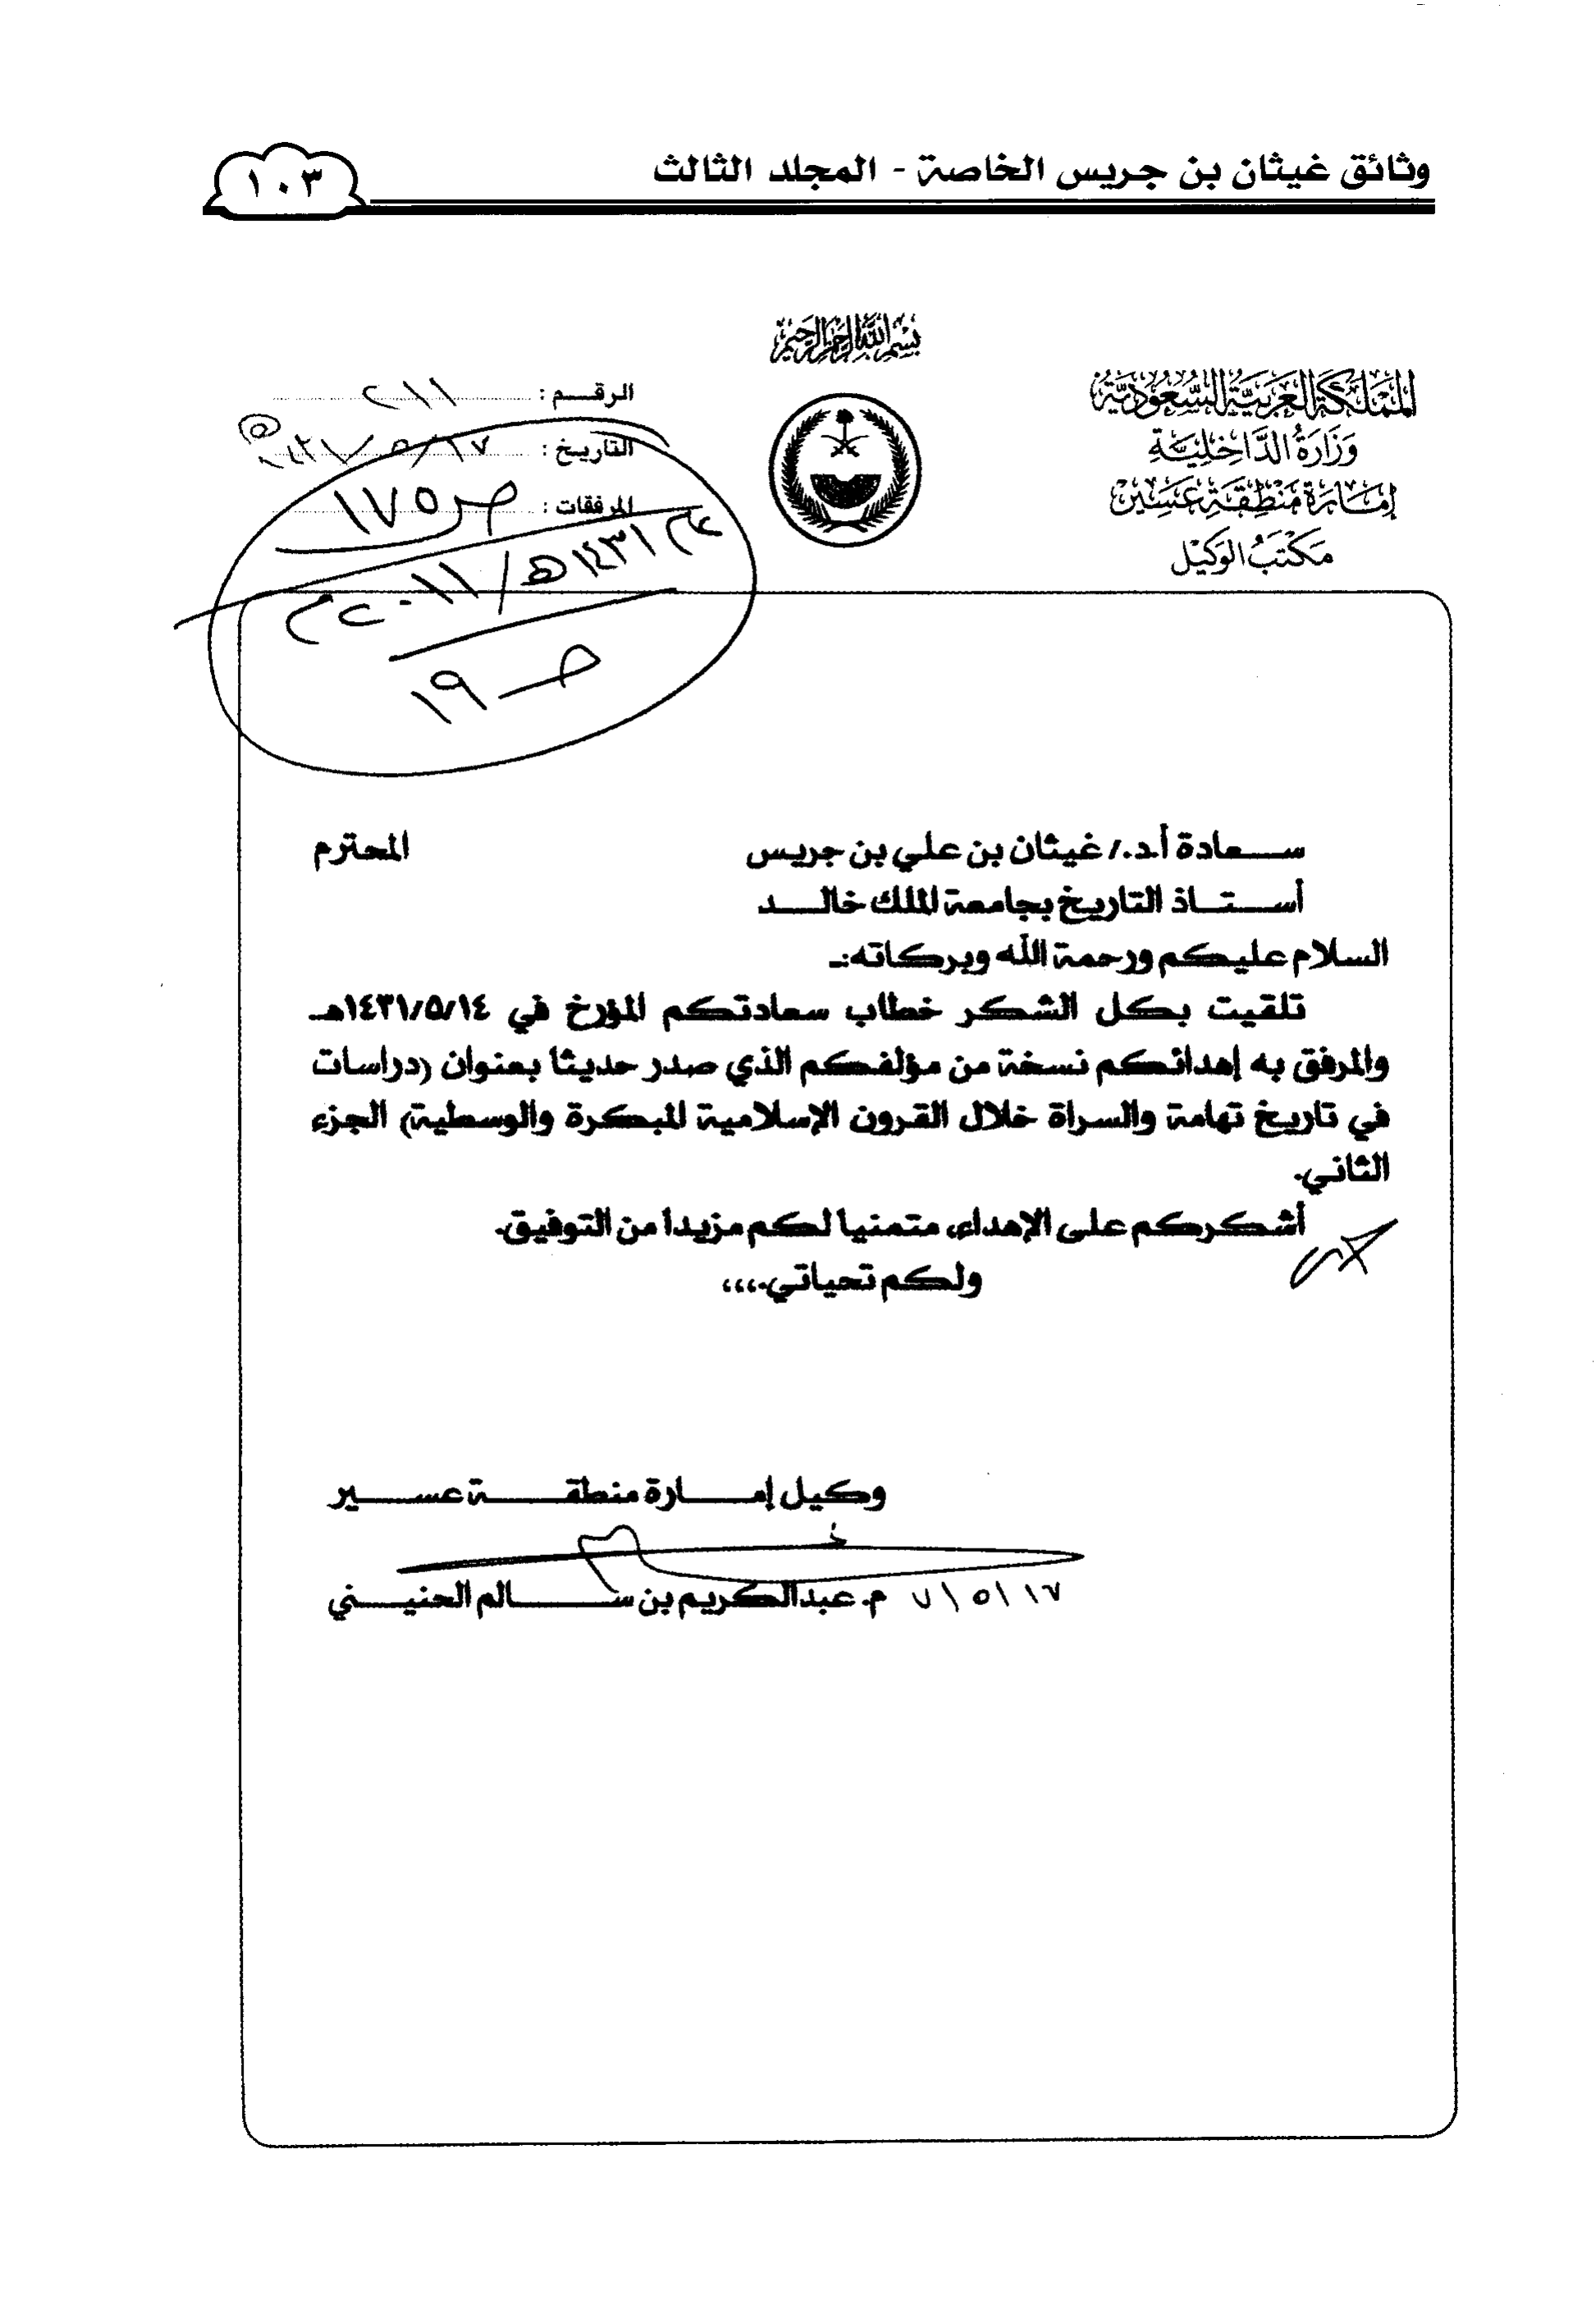 وثائق غيثان بن جريس الخاصة - المجلد الثالث
١٠٣
بسم الله الرحمن الرحيم
المملكة العربية السعودية
وزارة الداخلية
إمارة منطقة عسير
مكتب الوكيل
الرقم : ٢١١
التاريخ : ١٧/٥/
المرفقات :
١٧٥
١٤٣١هـ/٢٠١١م
صـ ١٩
سعادة أ.د./ غيثان بن علي بن جريس المحترم
أستاذ التاريخ بجامعة الملك خالد
السلام عليكم ورحمة الله وبركاته:ـ
تلقيت بكل الشكر خطاب سعادتكم المؤرخ في ١٤٣١/٥/١٤هـ
والمرفق به إهدائكم نسخة من مؤلفكم الذي صدر حديثا بعنوان (دراسات
في تاريخ تهامة والسراة خلال القرون الإسلامية المبكرة والوسطية) الجزء
الثاني.
أشكركم على الإهداء، متمنيا لكم مزيدا من التوفيق.
ولكم تحياتي.،،،
وكيل إمارة منطقة عسير
م. عبدالكريم بن سالم الحنيني